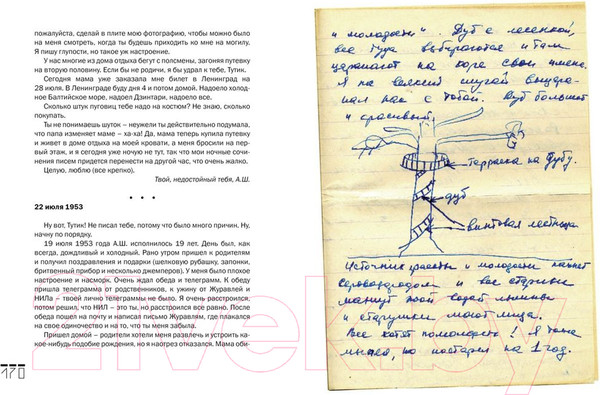 пожалуйста, сделай в плите мою фотографию, чтобы можно было
на меня смотреть, когда ты будешь приходить ко мне на могилу.
Я пишу глупости, но такое уж настроение.
У нас многие из дома отдыха бегут с полсмены, загоняя путевку
на вторую половину. Если бы не родичи, я бы удрал к тебе, Тутик.
Сегодня мама уже заказала мне билет в Ленинград на
28 июля. В Ленинграде буду дня 4 и потом домой. Надоело холод-
ное Балтийское море, надоел Дзинтари, надоело все.
Сколько штук пуговиц тебе надо на костюм? Не знаю, сколько
покупать.
Ты не понимаешь шуток – неужели ты действительно подумала,
что папа изменяет маме – ха-ха! Да, мама теперь купила путевку
и живет в доме отдыха на моей кровати, а меня бросили на пер-
вый этаж, и я сегодня уже ночую не тут, так что мои ночные сочи-
нения писем придется перенести на другой час, что очень жалко.
Целую, люблю (все крепко).
Твой, недостойный тебя, А.Ш.
• • •
22 июля 1953
Ну вот, Тутик! Не писал тебе, потому что было много причин. Ну,
начну по порядку.
19 июля 1953 года А.Ш. исполнилось 19 лет. День был, как
всегда, дождливый и холодный. Рано утром пришел к родителям
и получил поздравления и подарки (шелковую рубашку, запонки,
бритвенный прибор и несколько джемперов). У меня было плохое
настроение и насморк. Очень ждал обеда и телеграмм. К обеду
пришла телеграмма от родственников, к ужину от Журавлей и
НИЛа – твоей лично телеграммы не было. Я очень расстроился,
потом решил, что НИЛ – это ты, но расстроился все равно. После
обеда пошел на почту и написал письмо Журавлям, где плакался
на свое одиночество и на то, что ты меня забыла.
Пришел домой – родители хотели меня развлечь и устроить ка-
кое-нибудь подобие рождения, но я наотрез отказался. Мама оби-
170
и молодости". Дуб с лесенкой,
все туда выбираются и там
царапают на коре свои имена.
Я на всякий случай выцара-
пал нас с тобой. Дуб большой
и красивый.
терраска на дубу.
дуб
винтовая лестница
Источник красоты и молодости пахнет
сероводородом и все старики
мочут этой водой лысины
и старушки моют лица.
Все хотят помолодеть! Я тоже
мылся, но постарел на 1 год.
zivek.by